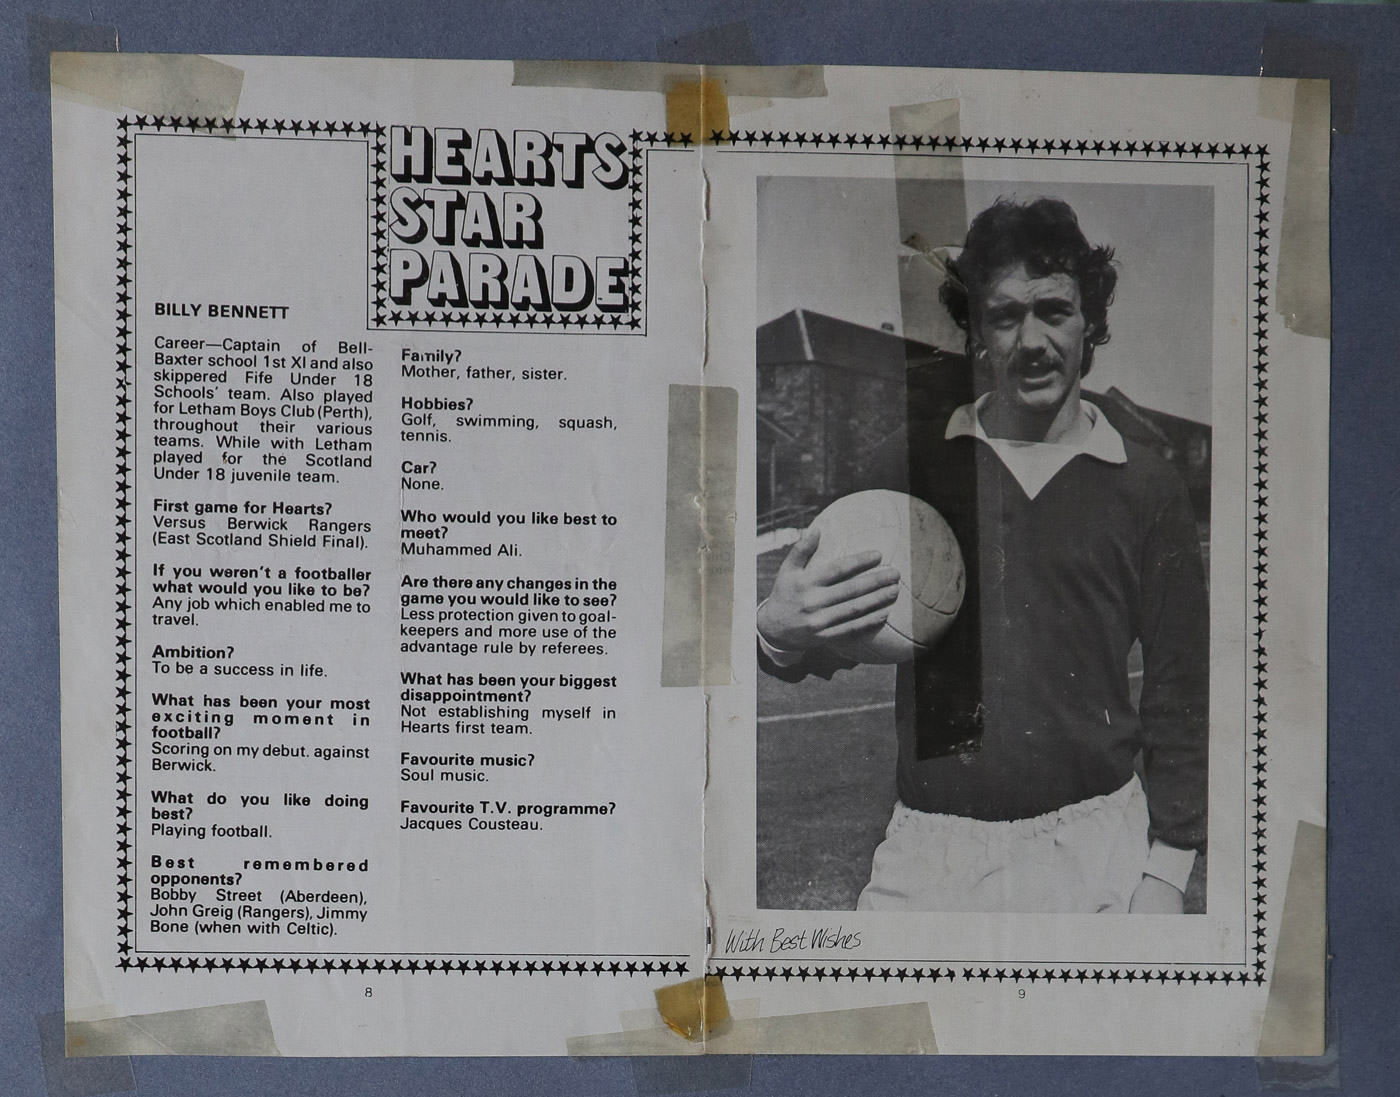 HEARTS
STAR
PARADE
BILLY BENNETT
Career—Captain of Bell-
Baxter school 1st XI and also
skippered Fife Under 18
Schools' team. Also played
for Letham Boys Club (Perth),
throughout their various
teams. While with Letham
played for the Scotland
Under 18 juvenile team.
First game for Hearts?
Versus Berwick Rangers
(East Scotland Shield Final).
If you weren't a footballer
what would you like to be?
Any job which enabled me to
travel.
Ambition?
To be a success in life.
What has been your most
exciting moment in
football?
Scoring on my debut. against
Berwick.
What do you like doing
best?
Playing football.
Best remembered
opponents?
Bobby Street (Aberdeen),
John Greig (Rangers), Jimmy
Bone (when with Celtic).
Family?
Mother, father, sister.
Hobbies?
Golf, swimming, squash,
tennis.
Car?
None.
Who would you like best to
meet?
Muhammed Ali.
Are there any changes in the
game you would like to see?
Less protection given to goal-
keepers and more use of the
advantage rule by referees.
What has been your biggest
disappointment?
Not establishing myself in
Hearts first team.
Favourite music?
Soul music.
Favourite T.V. programme?
Jacques Cousteau.
8
With Best Wishes
9